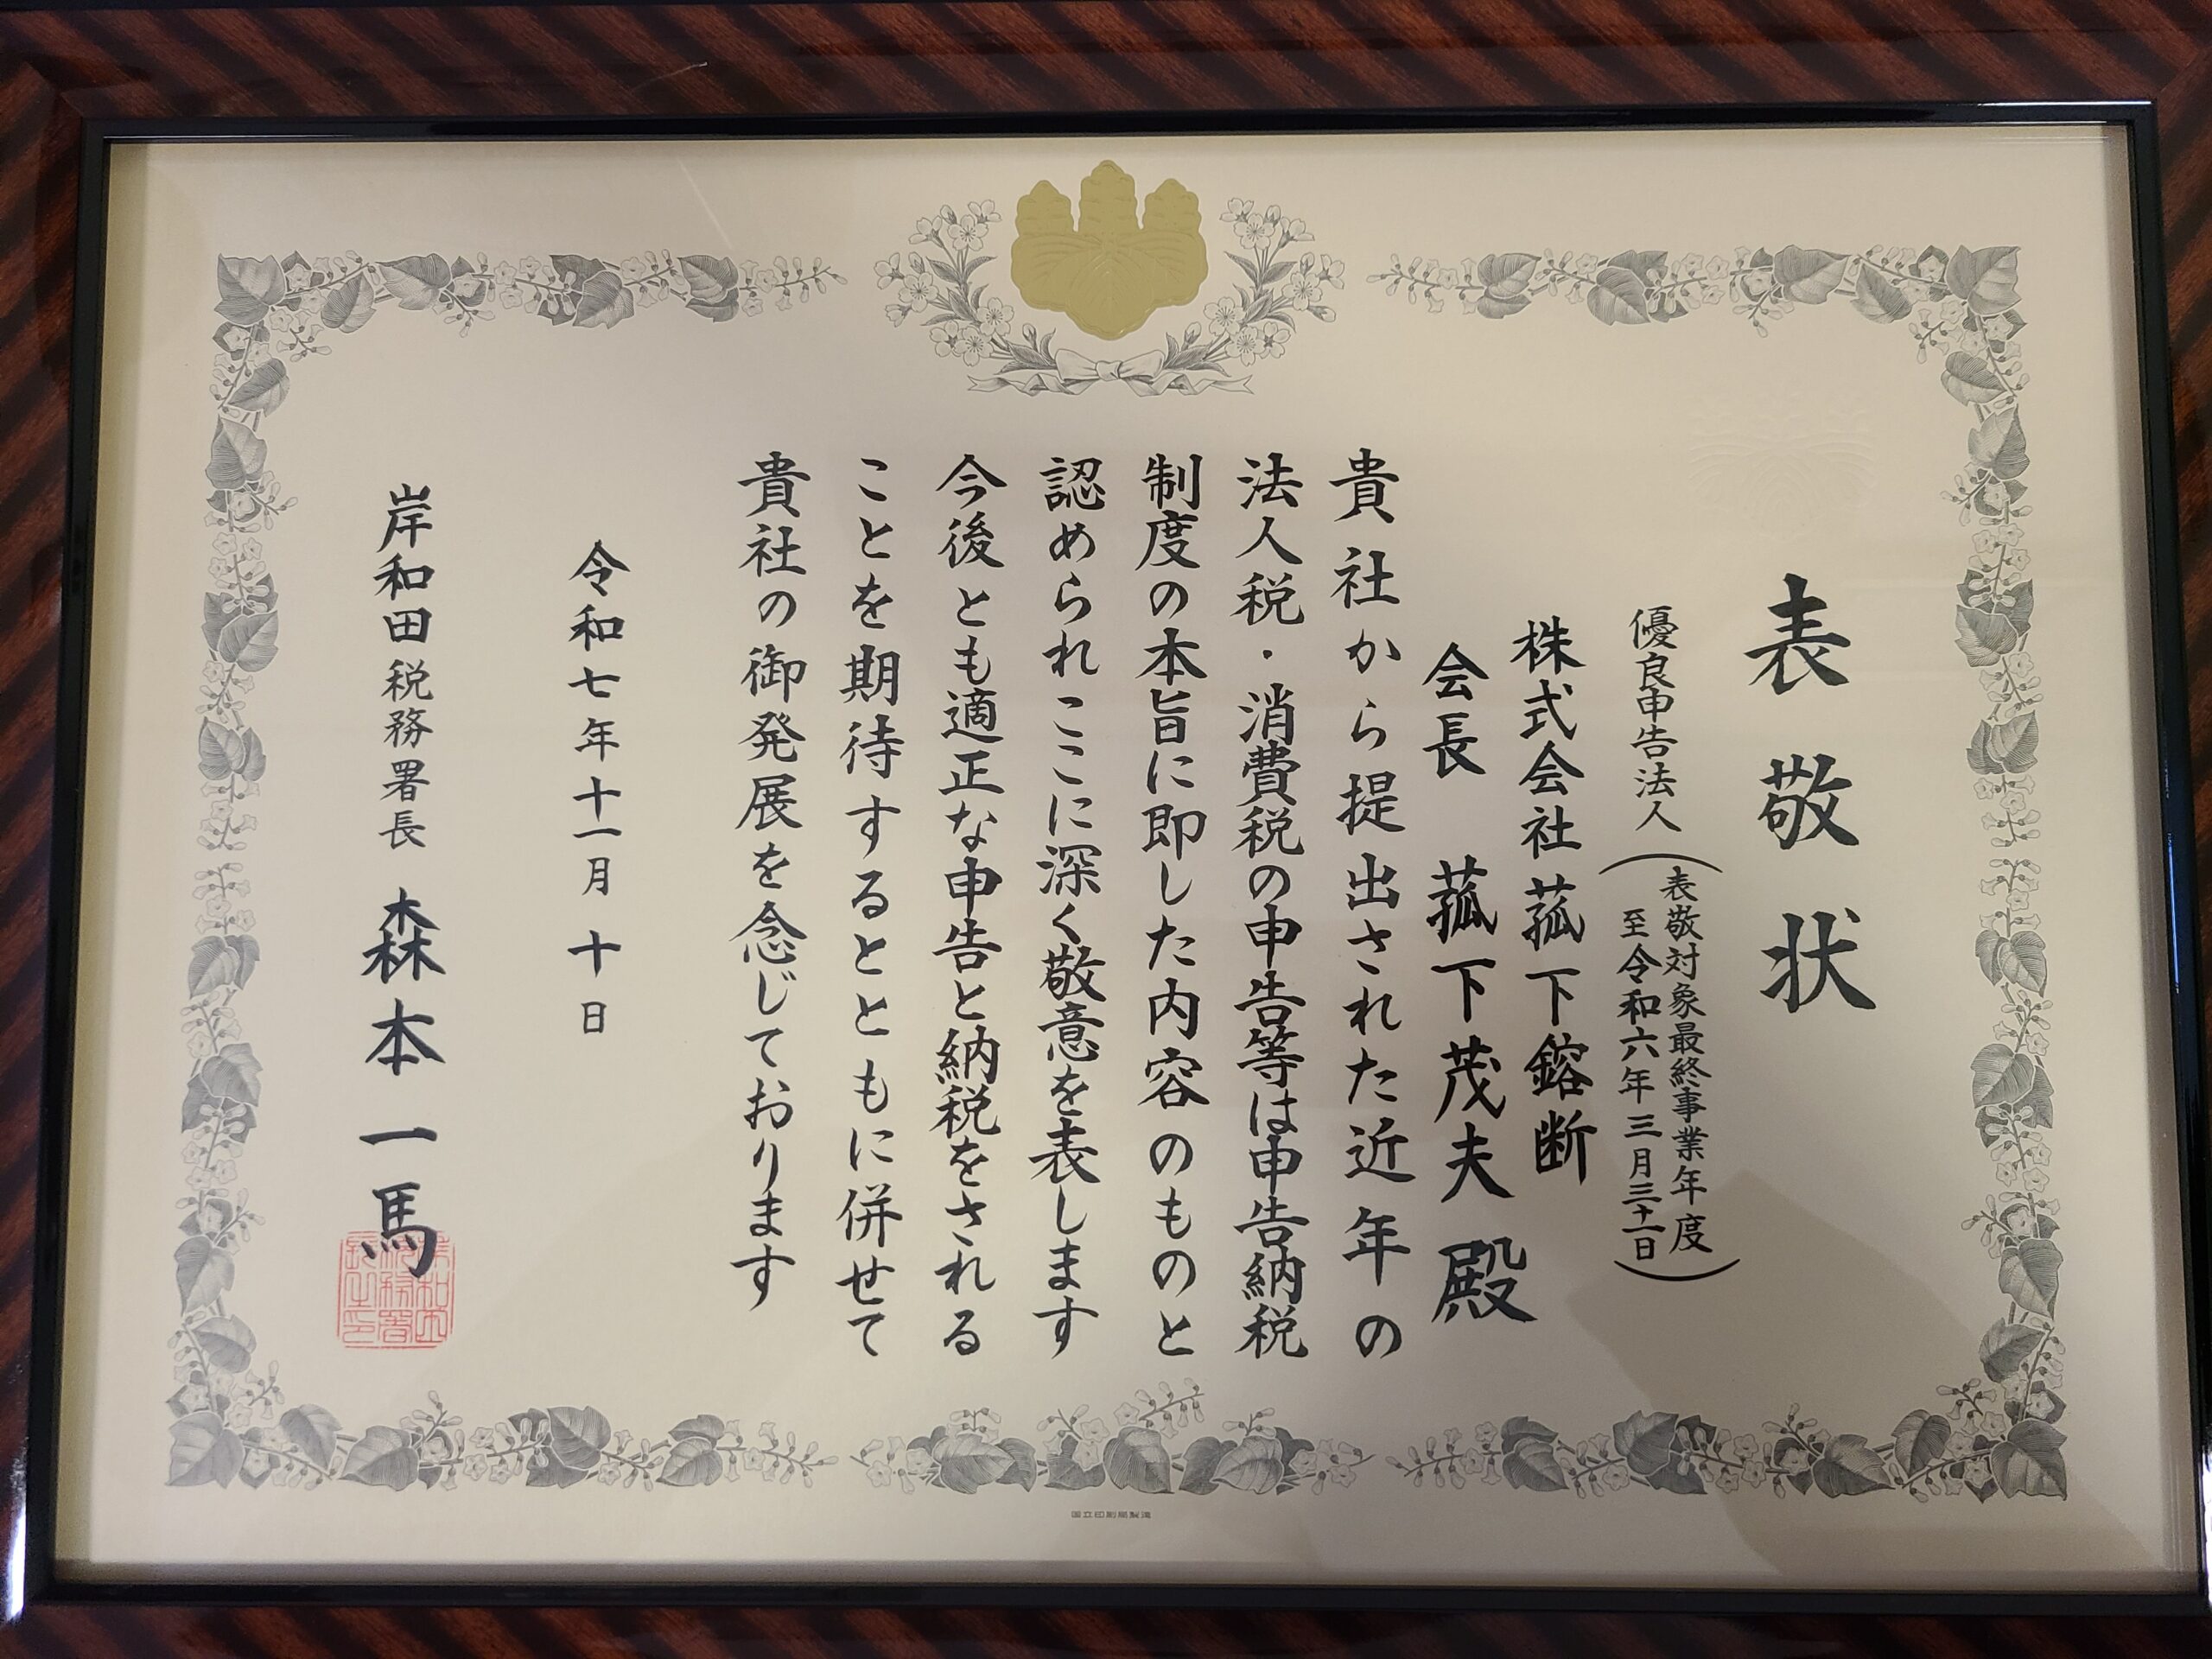 表敬状
優良申告法人(表敬対象最終事業年度
至令和六年三月三十一日)
株式会社菰下鎔断
会長 菰下茂夫殿
貴社から提出された近年の
法人税・消費税の申告等は申告納税
制度の本旨に即した内容のものと
認められここに深く敬意を表します
今後とも適正な申告と納税をされる
ことを期待するとともに併せて
貴社の御発展を念じております
令和七年十一月十日
岸和田税務署長 森本一馬
国立印刷局製造